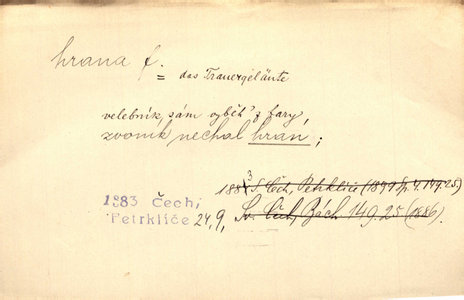 hrana f.
= das Trauergeläute
velebník sám vyběh' z fary,
zvoník nechal hran;
1883 S. Čech, Petrklíče
1883 Čech,
Petrklíče 24, 9,
Sv. Čech, 149.25 (1886).